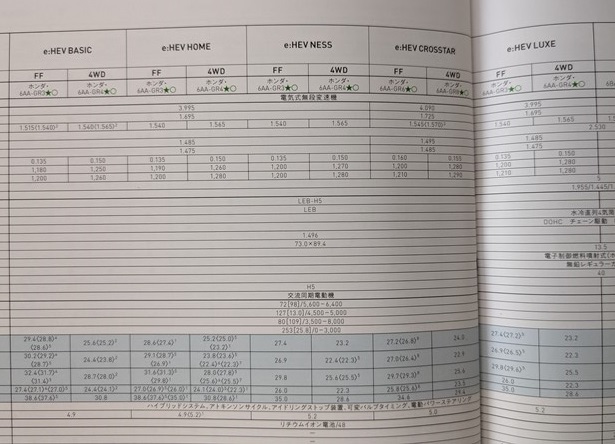 e:HEV BASIC e:HEV HOME e:HEV NESS e:HEV CROSSTAR e:HEV LUXE
FF 4WD FF 4WD FF 4WD FF 4WD FF 4WD
ホンダ・ ホンダ・ ホンダ・ ホンダ・ ホンダ・ ホンダ・ ホンダ・ ホンダ・ ホンダ・ ホンダ・
6AA-GR3★○ 6AA-GR4★○ 6AA-GR3★○ 6AA-GR4★○ 6AA-GR3★○ 6AA-GR4★○ 6AA-GR6★○ 6AA-GR8★○ 6AA-GR3★○ 6AA-GR4★○
電気式無段変速機
3.995 4.090 3.995
1.695 1.725 1.695
1.515(1.540) 1.540(1.565) 1.540 1.565 1.540 1.565 1.545(1.570) 1.540 1.565
2.530
1.485 1.495 1.485
1.475 1.485 1.475
0.135 0.150 0.135 0.150 0.135 0.150 0.160 0.155 0.135 0.150
1,180 1,250 1,190 1,260 1,200 1,270 1,200 1,280
1,200 1,260 1,200 1,270 1,200 1,280 1,210 1,290 1,210 1,280
5
LEB-H5
LEB
水冷直列4気筒
DOHC チェーン駆動
1.496
73.0×89.4
13.5
電子制御燃料噴射式
無鉛レギュラー
40
H5
交流同期電動機
72[98]/5,600-6,400
127[13.0]/4,500-5,000
80[109]/3,500-8,000
253[25.8]/0-3,000
29.4(28.8) 25.6(25.2) 28.6(27.4) 25.2(25.0) 27.4 23.2 27.2(26.8) 24.0 27.4(27.2) 23.2
(28.6) (23.2)
30.2(29.2) 24.4(23.8) 29.1(28.7) 23.8(23.6) 26.9 22.4(22.3) 27.0(26.4) 22.8 26.9(26.5) 22.3
(28.7) (26.9) (22.4)(22.3)
32.4(31.7) 28.7(28.0) 31.6(31.3) 28.0(27.8) 29.8 25.6(25.5) 29.7(29.3) 25.6 29.8(29.6) 25.5
(31.4) (29.8) (25.6)(25.5)
27.4(27.1)(27.0) 24.4(24.1) 27.0(26.9)(26.0) 24.1(24.0)(22.3) 26.0 22.3 25.8(25.6) 23.5 26.0 22.3
38.6(37.6) 30.8 38.6(37.6)(35.0) 30.8(28.6) 35.0 28.6 34.8 29.6 35.0 28.6
ハイブリッドシステム、アトキンソンサイクル、アイドリングストップ装置、可変バルブタイミング、電動パワーステアリング
4.9 4.9(5.2) 5.2 5.0 5.2
リチウムイオン電池/48